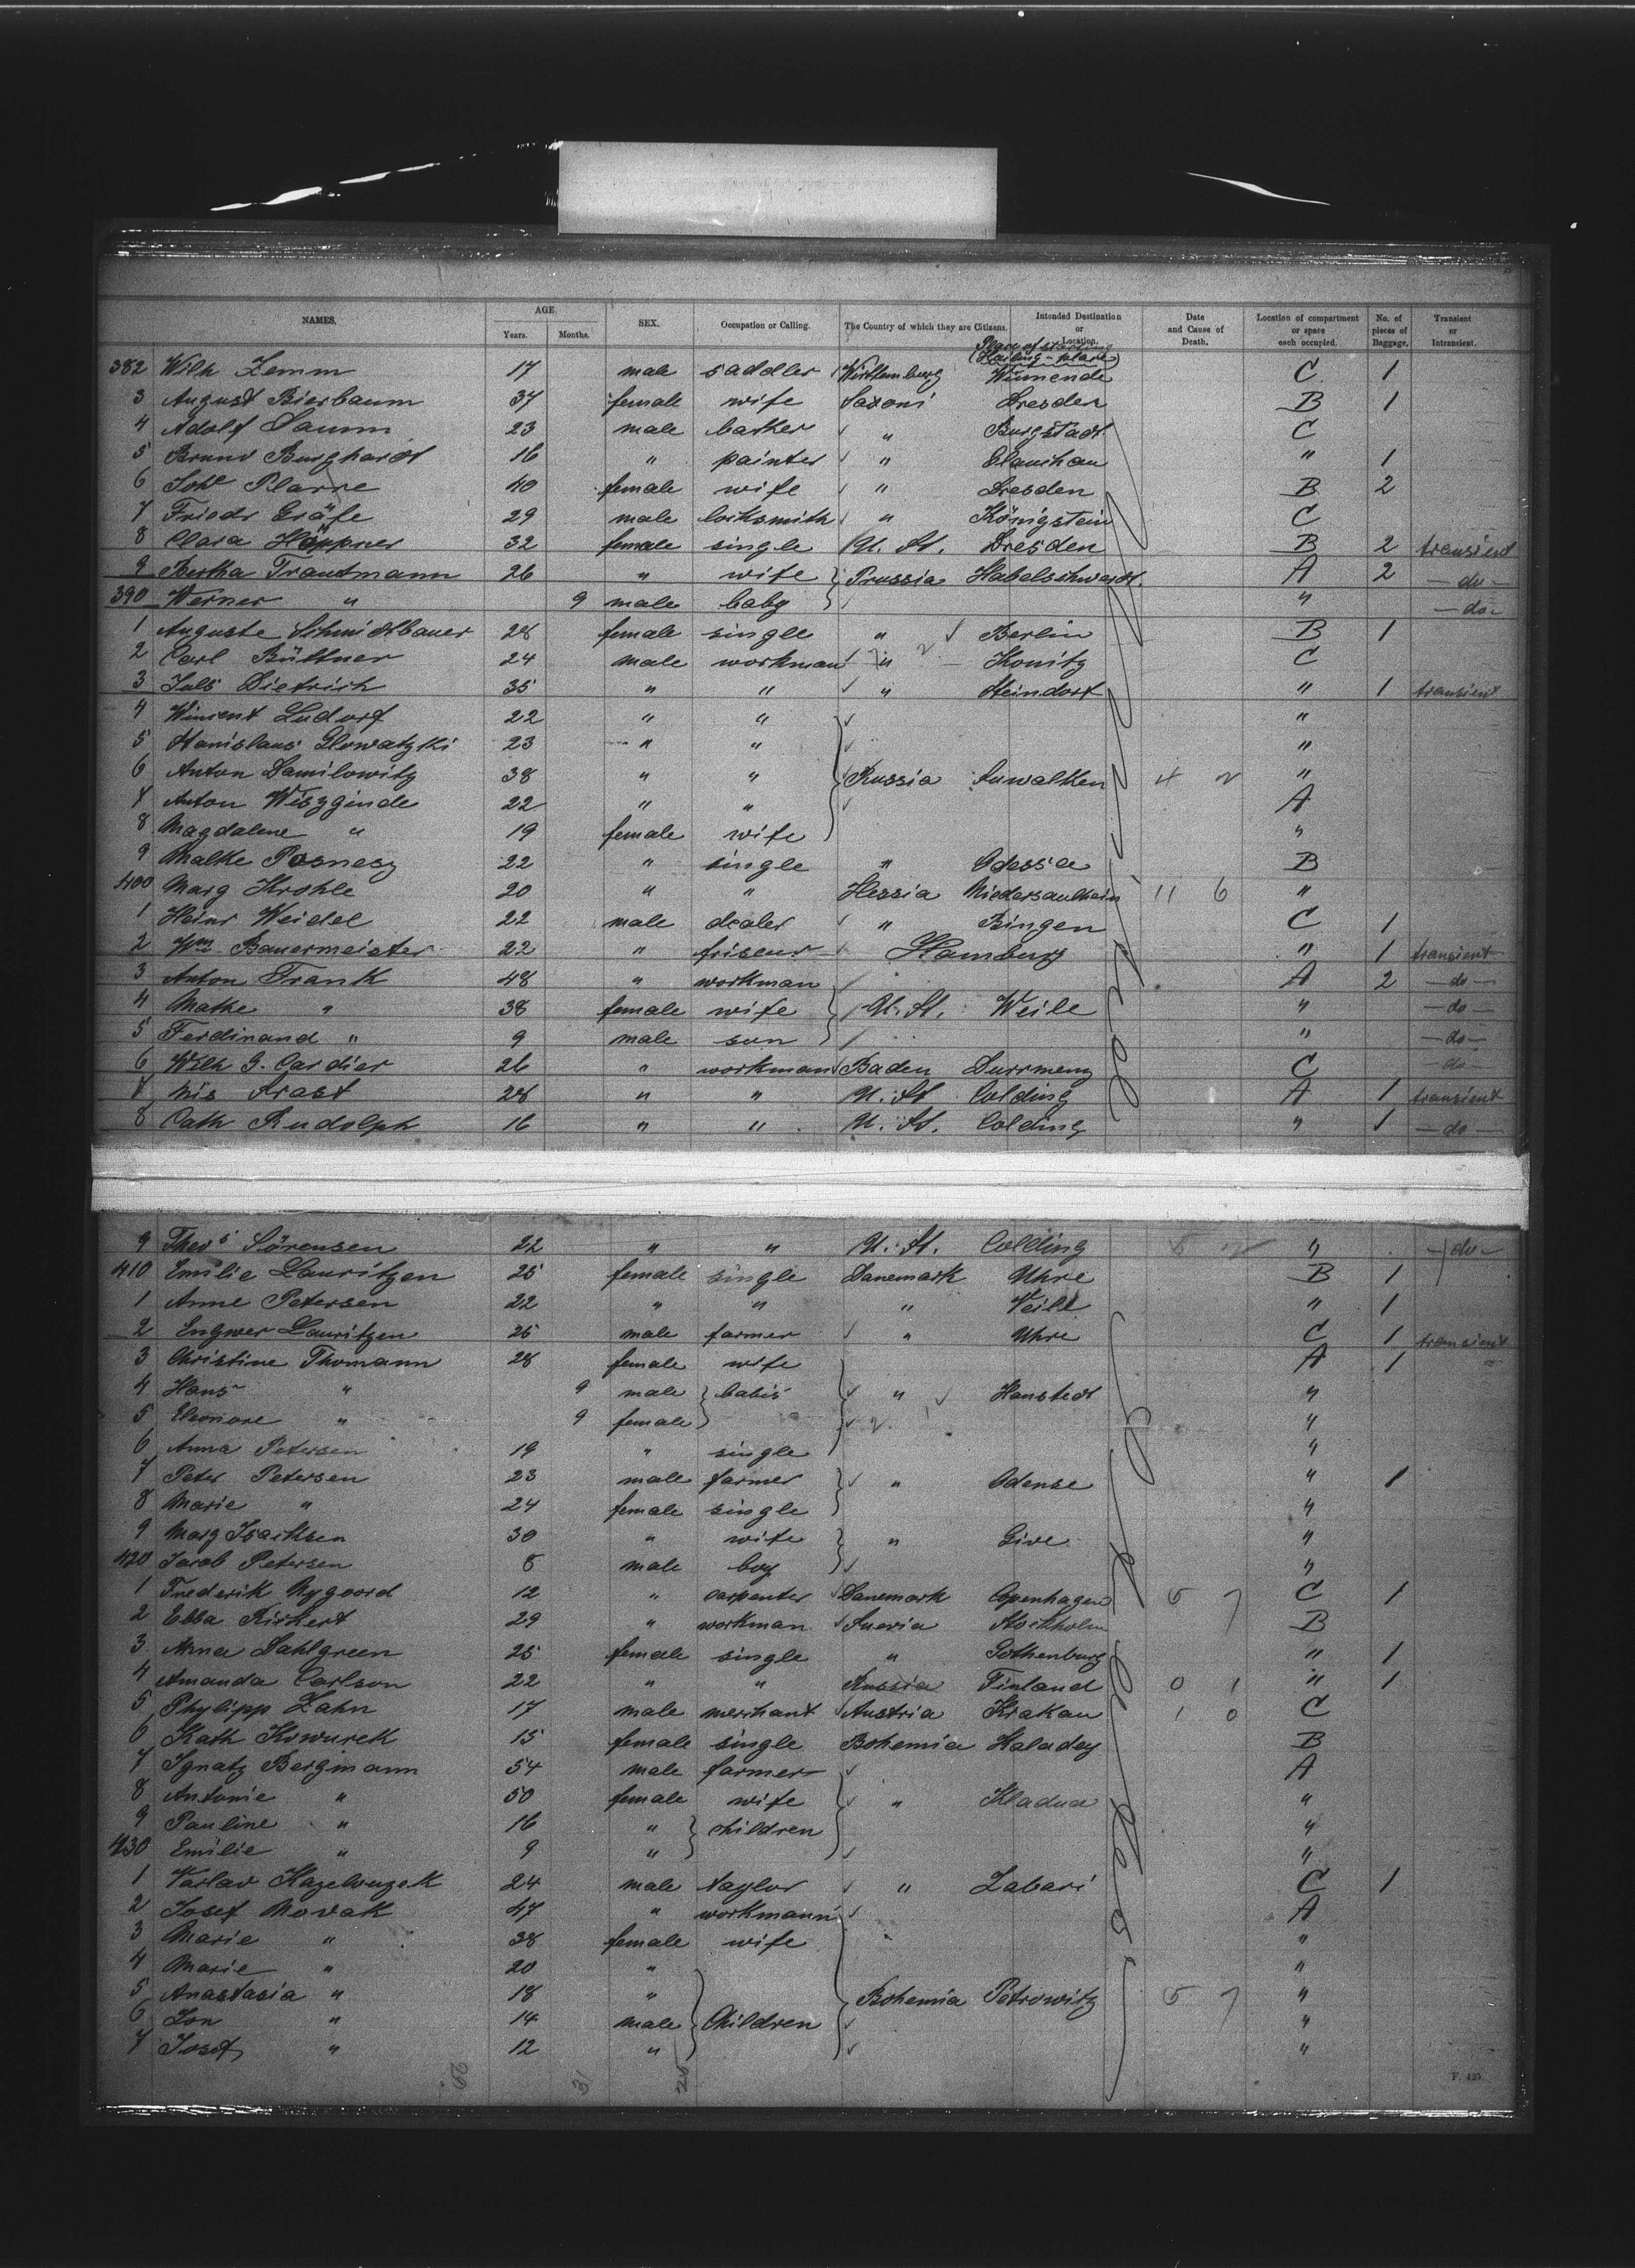 NAMES. AGE Years. Months. SEX. Occupation or Calling. The Country of which they are Citizens. Intended Destination or Location. Date and Cause of Death. Location of compartment or space each occupied. No. of pieces of Baggage. Transient or Intransient.
Place of starting
(Hailing-place)
382 Wilh Zemm 17 male saddler Württemburg Winnende C 1
3 August Bierbaum 37 female wife Saxoni Dresden B 1
4 Adolf Daumm 23 male barker " Burgstadt C
5 Bruno Burghardt 16 " painter " Glauchau " 1
6 Johe Plarre 40 female wife " Dresden B 2
7 Friedr Gräfe 29 male locksmith " Königstein C
8 Clara Höppner 32 female single U. St. Dresden B 2 transient
9 Bertha Trautmann 26 " wife Prussia Habelschwerdt A 2 - do -
390 Werner " 9 male baby " - do -
1 Auguste Schmidtbauer 28 female single " Berlin B 1
2 Carl Büttner 24 male workman " Konitz C
3 Juls Dietrich 35 " " " Steindorf " 1 transient
4 Wincent Ludorf 22 " " "
5 Stanislaus Glowatzki 23 " " "
6 Anton Damilowitz 38 " " Russia Suwalken 4 2 "
7 Anton Wiszginde 22 " " A
8 Magdalene " 19 female wife "
9 Malke Posnesz 22 " single " Odessa B
400 Marg Krohle 20 " " Hessia Niedersaulheim 11 6 "
1 Heinr Weidel 22 male dealer " Bingen C 1
2 Wm Bauermeister 22 " friseur Hamburg " 1 transient
3 Anton Frank 48 " workman A 2 - do -
4 Mathe " 38 female wife U. St. Weile " - do -
5 Ferdinand " 9 male son " - do -
6 Wilh G. Cardier 26 " workman Baden Durrmenz C do
7 Nis Krast 28 " " U. St Colding A 1 transient
8 Cath Rudolph 16 " " U. St. Colding " 1 - do -
9 Theos Sörensen 22 " " U. St. Colding 5 2 " - do -
410 Emilie Lauritzen 25 female single Danemark Uhre B 1
1 Anne Petersen 22 " " " Veile " 1
2 Engwer Lauritzen 25 male farmer " Uhre C 1 transient
3 Christine Thomann 28 female wife A 1
4 Hans " 9 male babis " Hanstedt "
5 Eleonore " 9 female "
6 Anna Petersen 19 " single "
7 Peter Petersen 23 male farmer " Odense " 1
8 Marie " 24 female single "
9 Marg Isacksen 30 " wife " Give "
420 Jacob Petersen 8 male boy "
1 Frederik Nygoord 12 " carpenter Danemark Copenhagen 5 7 C 1
2 Ebba Kirkert 29 " workman Suevia Stockholm B
3 Anna Dahlgreen 25 female single " Gothenburg " 1
4 Amanda Carlson 22 " " Russia Finland 0 1 " 1
5 Phylipp Zahn 17 male merchant Austria Krakau 1 0 C
6 Kath Kowurek 15 female single Bohemia Haladey B
7 Ignatz Bergmann 54 male farmer A
8 Antonie " 50 female wife " Kladua "
9 Pauline " 16 " children "
430 Emilie " 9 " "
1 Varlav Kazelouzek 24 male taylor " Zabari C 1
2 Josef Novak 47 " workmann A
3 Marie " 38 female wife "
4 Marie " 20 " "
5 Anastasia " 18 " Bohemia Petrowitz 5 7 "
6 Jon " 14 male Children "
7 Josef " 12 " "
29 31 28
F. 425.